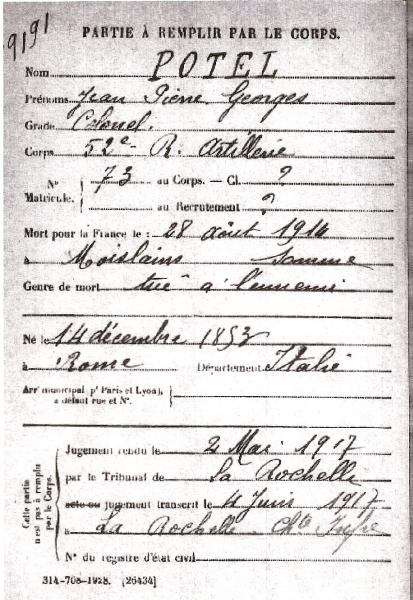 9191
PARTIE À REMPLIR PAR LE CORPS.
Nom POTEL
Prénoms Jean Pierre Georges
Grade Colonel.
Corps 52e R. Artillerie
N° Matricule. { 73 au Corps. — Cl. ?
au Recrutement ?
Mort pour la France le : 28 août 1914
à Moislains Somme
Genre de mort tué à l'ennemi
Né le 14 décembre 1853
à Rome Département Italie
Arrt municipal (pr Paris et Lyon), à défaut rue et N°.
Cette partie n'est pas à remplir par le Corps.
Jugement rendu le 2 Mai 1917
par le Tribunal de La Rochelle
acte ou jugement transcrit le 4 Juin 1917
à La Rochelle Chte Infre
N° du registre d'état civil
314-708-1928. [26434]